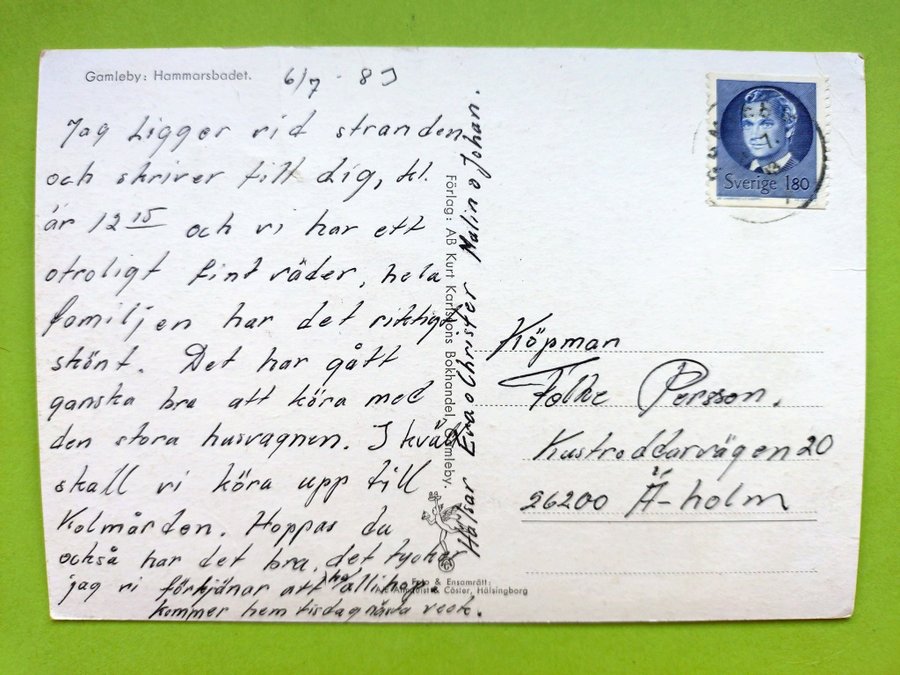 Gamleby: Hammarsbadet.
6/7 - 83
Jag Ligger vid stranden
och skriver till Dig, kl.
är 12 15 och vi har ett
otroligt fint väder, hela
familjen har det riktigt
skönt. Det har gått
ganska bra att köra med
den stora husvagnen. I kväll
skall vi köra upp till
Kolmården. Hoppas du
också har det bra, det tycker
jag vi förtjänar att ha allihop.
Kommer hem tisdag nästa veck.
Hälsar Eva o Christer Malin o Johan.
Förlag: AB Kurt Karlssons Bokhandel, Gamleby.
Foto & Ensamrätt:
Almquist & Cöster, Hälsingborg
Sverige 180
Köpman
Folke Persson.
Kustroddarvägen 20
26200 Ä-holm